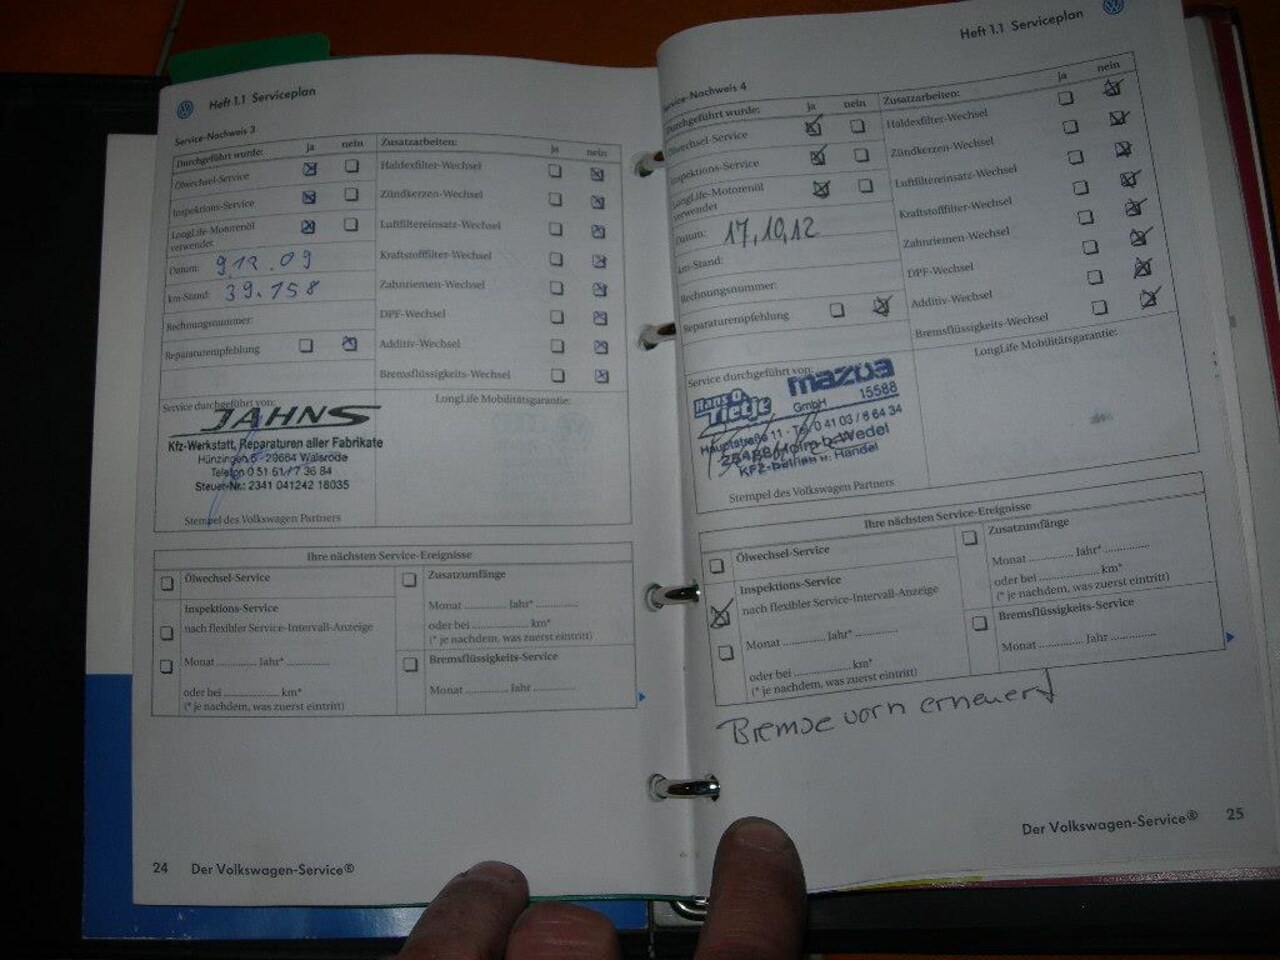 Heft 1.1 Serviceplan
Service-Nachweis 3
Durchgeführt wurde: ja nein
Ölwechsel-Service
Inspektions-Service
LongLife-Motorenöl
verwendet
Datum: 9.12.09
km-Stand: 39.758
Rechnungsnummer:
Reparaturempfehlung
Zusatzarbeiten: ja nein
Haldexfilter-Wechsel
Zündkerzen-Wechsel
Luftfiltereinsatz-Wechsel
Kraftstofffilter-Wechsel
Zahnriemen-Wechsel
DPF-Wechsel
Additiv-Wechsel
Bremsflüssigkeits-Wechsel
Service durchgeführt von:
JAHNS
Kfz-Werkstatt, Reparaturen aller Fabrikate
Hünzingen 6 - 29664 Walsrode
Telefon 0 51 61 / 7 36 84
Steuer-Nr.: 2341 041242 18035
Stempel des Volkswagen Partners
LongLife Mobilitätsgarantie:
Ihre nächsten Service-Ereignisse
Ölwechsel-Service
Inspektions-Service
nach flexibler Service-Intervall-Anzeige
Monat ............ Jahr* ............
oder bei ................ km*
(* je nachdem, was zuerst eintritt)
Zusatzumfänge
Monat ............ Jahr* ............
oder bei ................ km*
(* je nachdem, was zuerst eintritt)
Bremsflüssigkeits-Service
Monat ............ Jahr ............
24 Der Volkswagen-Service®
Heft 1.1 Serviceplan
Service-Nachweis 4
Durchgeführt wurde: ja nein
Ölwechsel-Service
Inspektions-Service
LongLife-Motorenöl
verwendet
Datum: 17.10.12
km-Stand:
Rechnungsnummer:
Reparaturempfehlung
Zusatzarbeiten: ja nein
Haldexfilter-Wechsel
Zündkerzen-Wechsel
Luftfiltereinsatz-Wechsel
Kraftstofffilter-Wechsel
Zahnriemen-Wechsel
DPF-Wechsel
Additiv-Wechsel
Bremsflüssigkeits-Wechsel
Service durchgeführt von:
Hans O. mazda
Tietje GmbH 15588
Hauptstraße 11 - Tel. 0 41 03 / 8 64 34
25488 Holm b. Wedel
KFZ-Betrieb u. Handel
Stempel des Volkswagen Partners
LongLife Mobilitätsgarantie:
Ihre nächsten Service-Ereignisse
Ölwechsel-Service
Inspektions-Service
nach flexibler Service-Intervall-Anzeige
Monat ............ Jahr* ............
oder bei ................ km*
(* je nachdem, was zuerst eintritt)
Zusatzumfänge
Monat ............ Jahr* ............
oder bei ................ km*
(* je nachdem, was zuerst eintritt)
Bremsflüssigkeits-Service
Monat ............ Jahr ............
Bremse vorn erneuert
Der Volkswagen-Service® 25